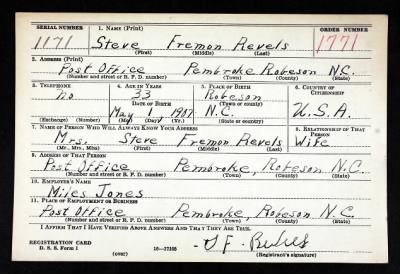 SERIAL NUMBER 1. NAME (Print) ORDER NUMBER
1171 Steve Fremon Revels 1771
(First) (Middle) (Last)
2. ADDRESS (Print)
Post Office Pembroke Robeson N.C.
(Number and street or R. F. D. number) (Town) (County) (State)
3. TELEPHONE 4. AGE IN YEARS 5. PLACE OF BIRTH 6. COUNTRY OF CITIZENSHIP
no 33 Robeson
DATE OF BIRTH (Town or county)
May 1 1907 N.C. U.S.A.
(Exchange) (Number) (Mo.) (Day) (Yr.) (State or country)
7. NAME OF PERSON WHO WILL ALWAYS KNOW YOUR ADDRESS 8. RELATIONSHIP OF THAT PERSON
Mrs. Steve Fremon Revels Wife
(Mr., Mrs., Miss) (First) (Middle) (Last)
9. ADDRESS OF THAT PERSON
Post Office Pembroke, Robeson N.C.
(Number and street or R. F. D. number) (Town) (County) (State)
10. EMPLOYER'S NAME
Miles Jones
11. PLACE OF EMPLOYMENT OR BUSINESS
Post Office Pembroke, Robeson N.C.
(Number and street or R. F. D. number) (Town) (County) (State)
I AFFIRM THAT I HAVE VERIFIED ABOVE ANSWERS AND THAT THEY ARE TRUE.
REGISTRATION CARD
D. S. S. Form 1 (over) (Registrant's signature)